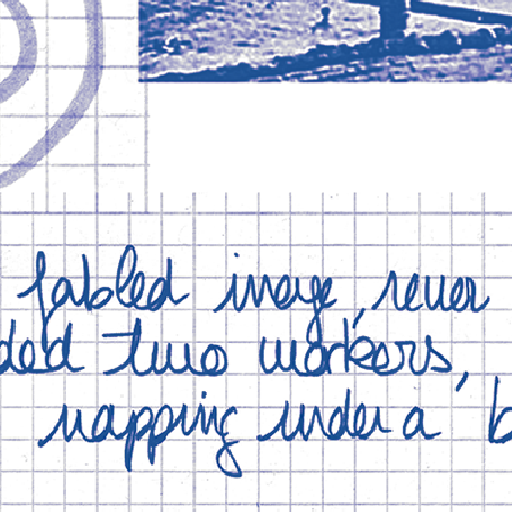 fabled image, never
ded two workers,
napping under a b